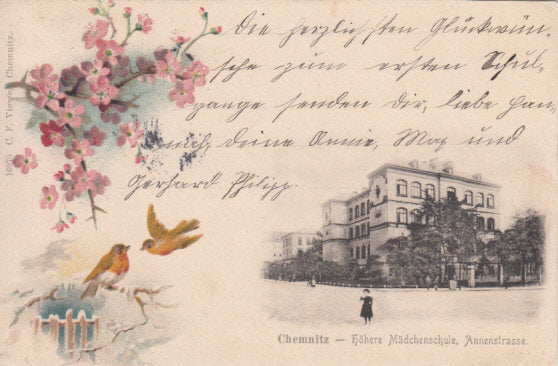 Die herzlichsten Glückwün-
sche zum ersten Schul-
gange senden Dir, liebe Han-
deine Annie, Max und
Gerhard Philipp.
16075 C. F. Viewe Chemnitz.
Chemnitz — Höhere Mädchenschule, Annenstrasse.